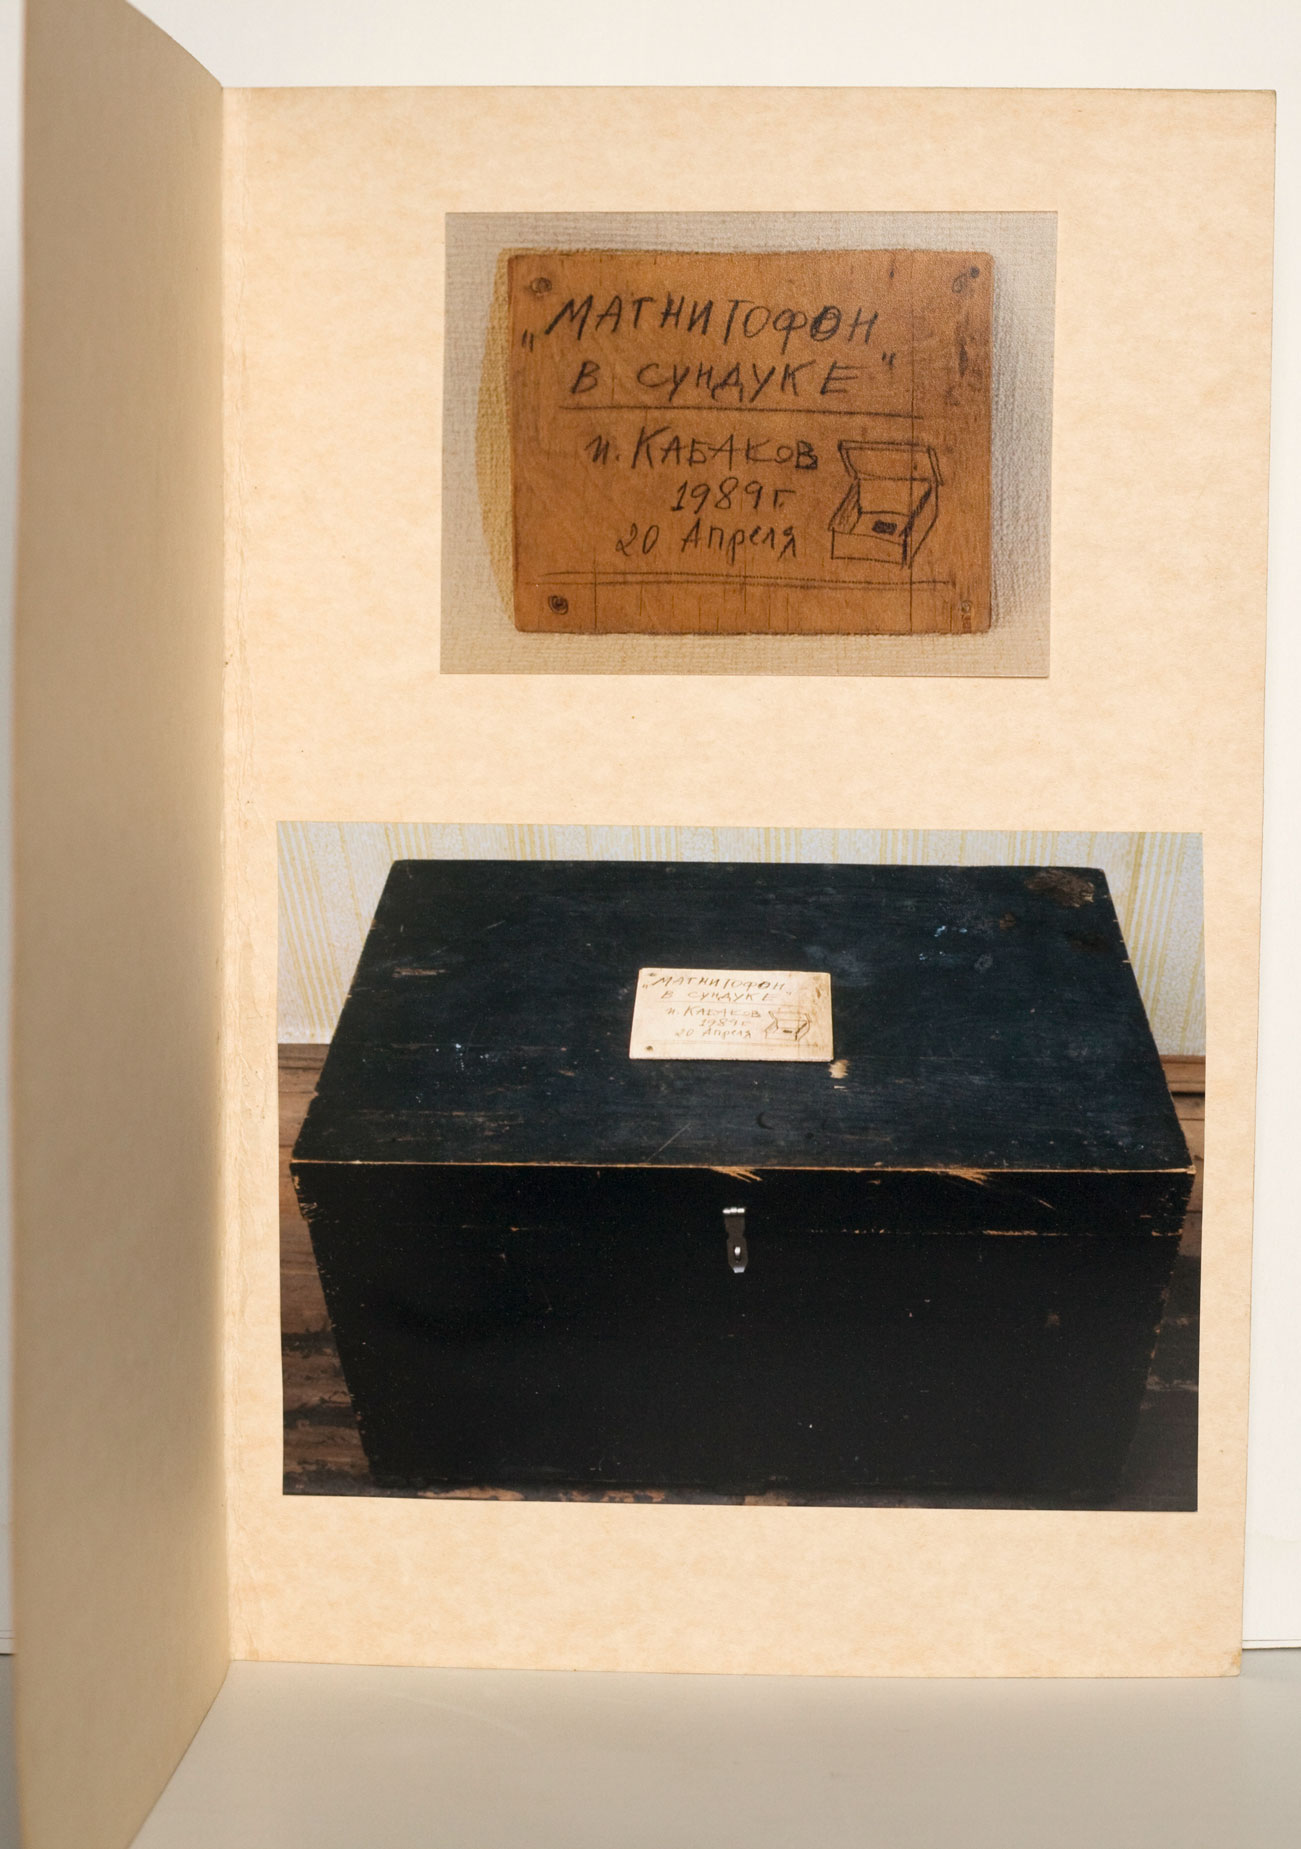 „МАГНИТОФОН
В СУНДУКЕ"
И. КАБАКОВ
1989г.
20 Апреля
„МАГНИТОФОН
В СУНДУКЕ"
И. КАБАКОВ
1989г.
20 Апреля